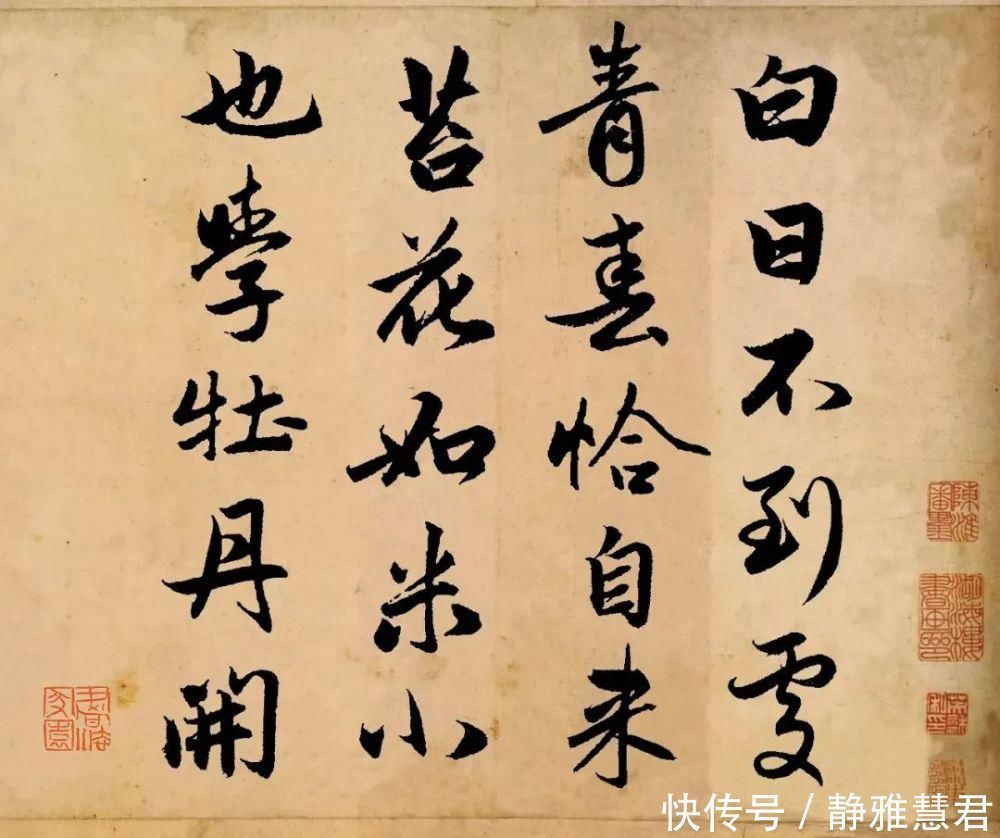 白日不到處
青春恰自来
苔花如米小
也學牡丹開
快传号 / 静雅慧君